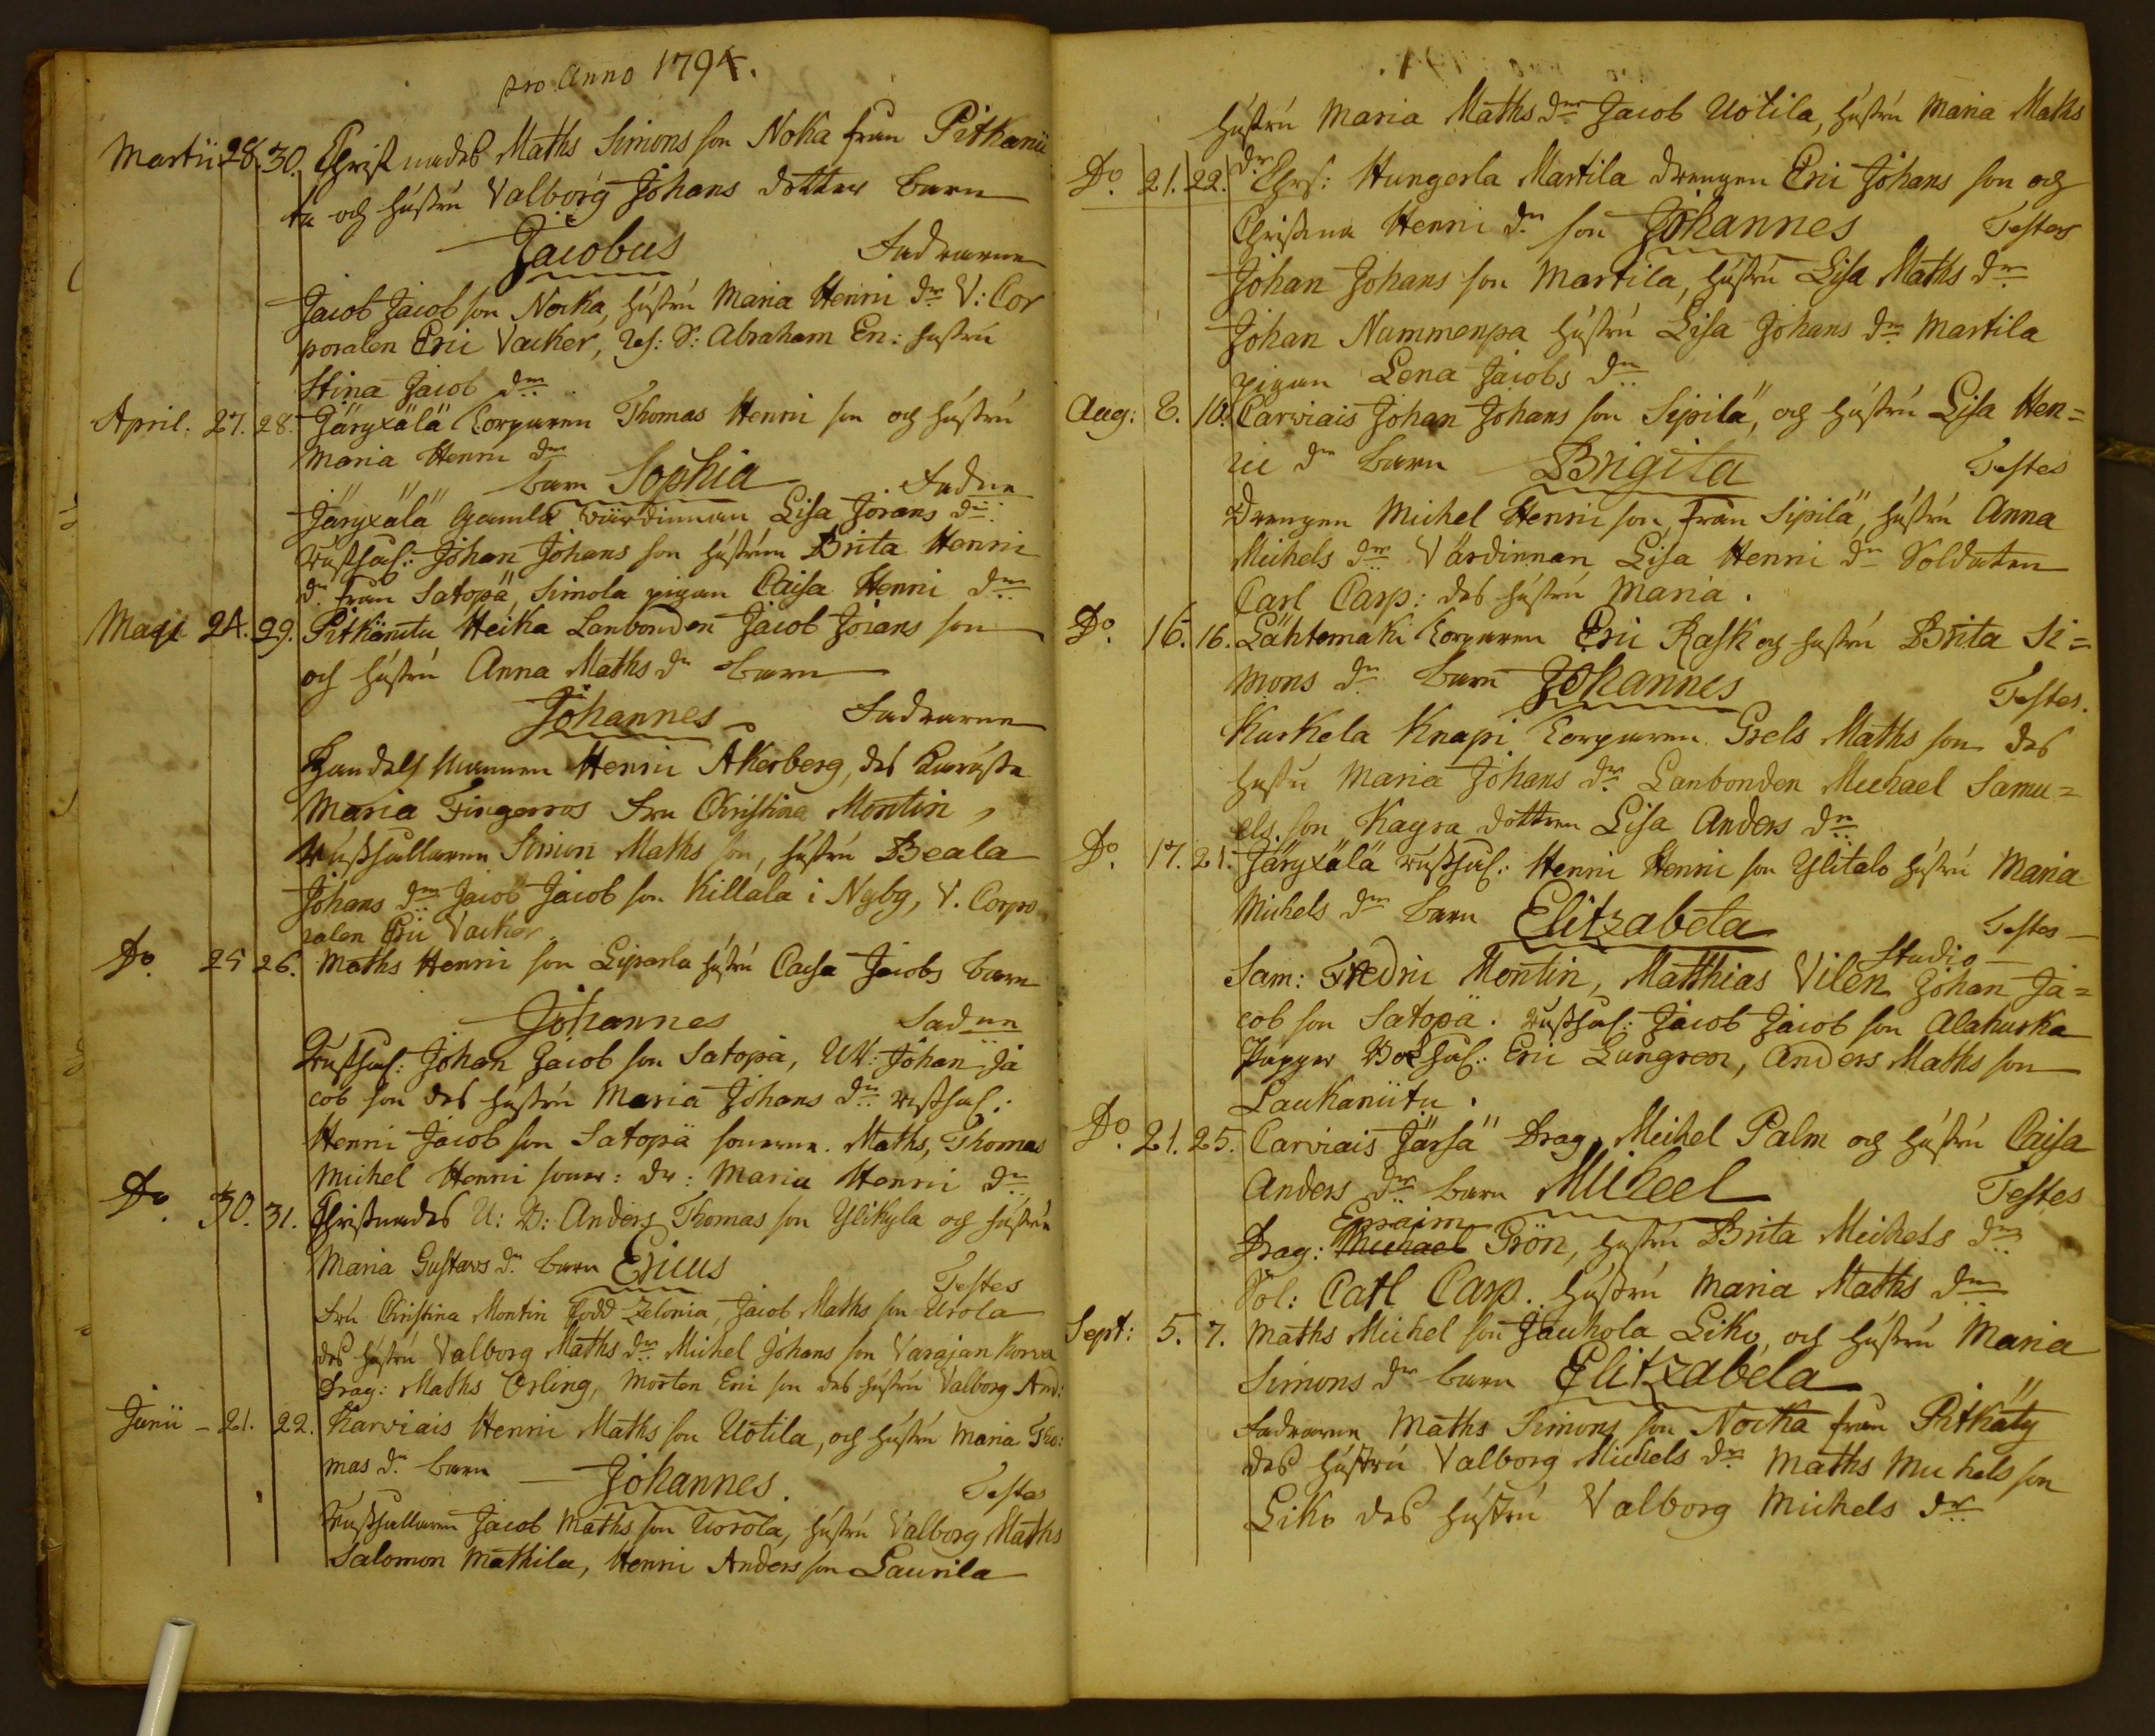 pro Anno 1794.
Martii 28. 30. Christnades Maths Simons son Noka från Pitkänii
tu och hustru Valborg Johans dotter barn
Jacobus Faddrarne
Jacob Jacob son Nocka, hustru Maria Henric dr V: Cor
poralen Eric Vacker, Abraham En: hustru
Stina Jacob dr
April. 27. 28. Järyxälä Torparen Thomas Henric son och hustru
Maria Henric dr
barn Sophia Faddr
Järyxälä gamla värdinnan Lisa Jörans dr
Rusthåll: Johan Johans son hustrun Brita Henric
dr från Satopä, Simola pigan Caisa Henric dr
Maji 24. 29. Pitkänitu Heika Lanbonden Jacob Jörans son
och hustru Anna Maths dr barn
Johannes Faddrarne
Handels Mannen Henric Åkerberg, des Käresta
Maria Fingerros Fru Christina Montin,
Rusthållaren Simon Maths son, hustru Beata
Johans dr Jacob Jacob son Killala i Nyby, V. Corpo
ralen Eric Vacker.
Do 25 26. Maths Henric son Liparla hustru Caisa Jacobs barn
Johannes Faddr
Rusthåll: Johan Jacob son Satopä, Johan Ja
cob son des hustru Maria Johans dr Rusthåll:
Henric Jacob son Satopä sonerne. Maths, Thomas
Michel Henric soner: dr: Maria Henric dr
Do 30. 31. Christnades U: B: Anders Thomas son Ylikyla och hustru
Maria Gustavs dr barn Ericus
Testes
Fru Christina Montin född Zelonia, Jacob Maths son Urola
des hustru Valborg Maths dr Michel Johans son Varajan Korva
Drag: Maths Örling, Morten Eric son des hustru Valborg And:
Junii - 21. 22. Karviais Henric Maths son Uotila, och hustru Maria Tho:
mas dr barn Johannes. Testes
Rusthållaren Jacob Maths son Uorola, hustru Valborg Maths
Salomon Mathila, Henric Anders son Laurila
hustru Maria Maths dr Jacob Uotila, hustru Maria Maths
dr
Do 21. 22. Chrs: Hungerla Martila drengen Eric Johans son och
Christina Henric dr son Johannes Testes
Johan Johans son Martila, hustru Lisa Maths dr
Johan Nummenpa hustru Lisa Johans dr Martila
pigan Lena Jacobs dr
Aug: 8. 10. Carviais Johan Johans son Sipilä, och hustru Lisa Hen=
ric dr barn Brigita Testes
Drengen Michel Henric son från Sipilä, hustru Anna
Michels dr Värdinnan Lisa Henric dr Soldaten
Carl Carp: des hustru Maria.
Do 16. 16. Lähtemäki Torparen Eric Rask och hustru Brita Si=
mons dr barn Johannes Testes.
Kurkela Knapi Torparen Grels Maths son des
hustru Maria Johans dr Lanbonden Michael Samu=
els son Kayra dottren Lisa Anders dr
Do 17. 21. Järyxälä Rusthåll: Henric Henric son Ylitalo hustru Maria
Michels dr barn Elitzabeta Testes
Studio
Sam: Fredric Montin, Matthias Vilen Johan Ja=
cob son Satopä. Rusthåll: Jacob Jacob son Alahurka
Eric Lungren, Anders Maths son
Laukaniitu.
Do 21. 25. Carviais Järsä Drag. Michel Palm och hustru Caisa
Anders dr barn Micheel Testes
Epraim
Drag: Michael Grön, hustru Brita Michels dr
Sol: Carl Carp. hustru Maria Maths dr
Sept: 5. 7. Maths Michel son Jauhola Liko, och hustru Maria
Simons dr barn Elitzabéla
Faddrarne Maths Simons son Nocka från Pitkäty
des hustru Valborg Michels dr Maths Michels son
Liko des hustru Valborg Michels dr